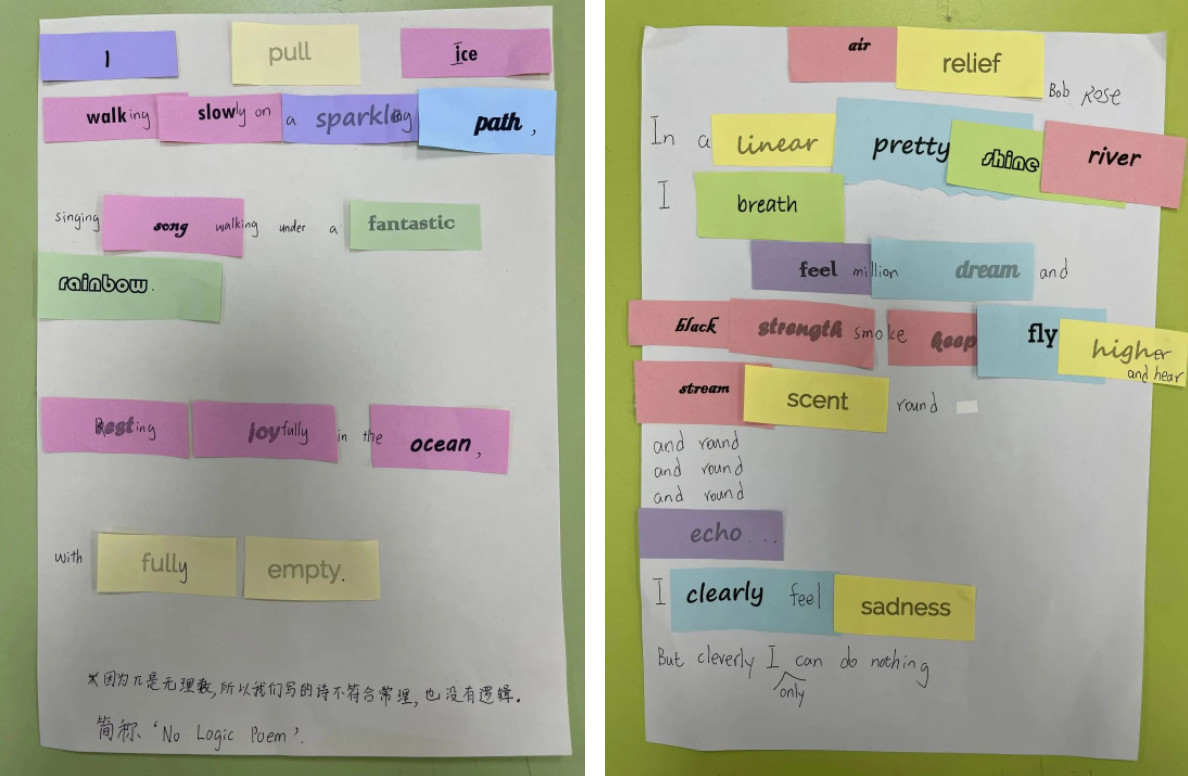 I pull ice
walking slowly on a sparkling path,
singing song walking under a fantastic
rainbow.
Resting joyfully in the ocean,
with fully empty.
※因为π是无理数,所以我们写的诗不符合常理,也没有逻辑。
简称‘No Logic Poem’.
air relief
Bob Rose
In a linear pretty shine river
I breath
feel million dream and
black strength smoke keep fly higher
and hear
stream scent round
and round
and round
and round
echo...
I clearly feel sadness
But cleverly I can do nothing
only